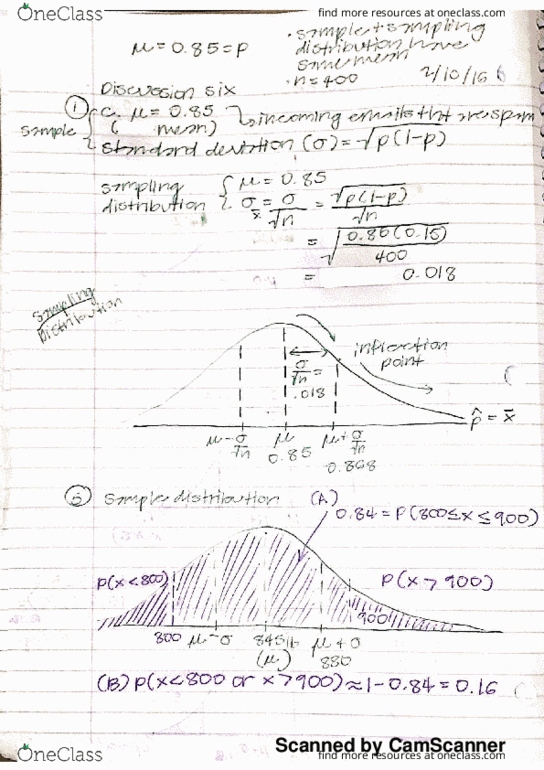 OneClass
find more resources at oneclass.com
μ = 0.85 = p
• sample + sampling
distribution have
same mean
• n = 400
2/10/16
Discussion six
① c. μ = 0.85
( mean)
incoming emails that are spam
sample
standard deviation (σ) = √p(1-p)
sampling
distribution
μ = 0.85
σx = σ/√n = √p(1-p)/√n
= √0.85(0.15)/400
= 0.018
Sampling
Distribution
σ/√n =
.018
inflection
point
p̂ = x̄
μ-σ/√n
μ
0.85
μ+σ/√n
0.868
sample distribution
(A)
0.84 = P(800≤x≤900)
P(x<800)
P(x>900)
900
800
μ-σ
845lb
(μ)
μ+σ
880
(B) P(x<800 or x>900) ≈ 1-0.84 = 0.16
Scanned by CamScanner
OneClass
find more resources at oneclass.com